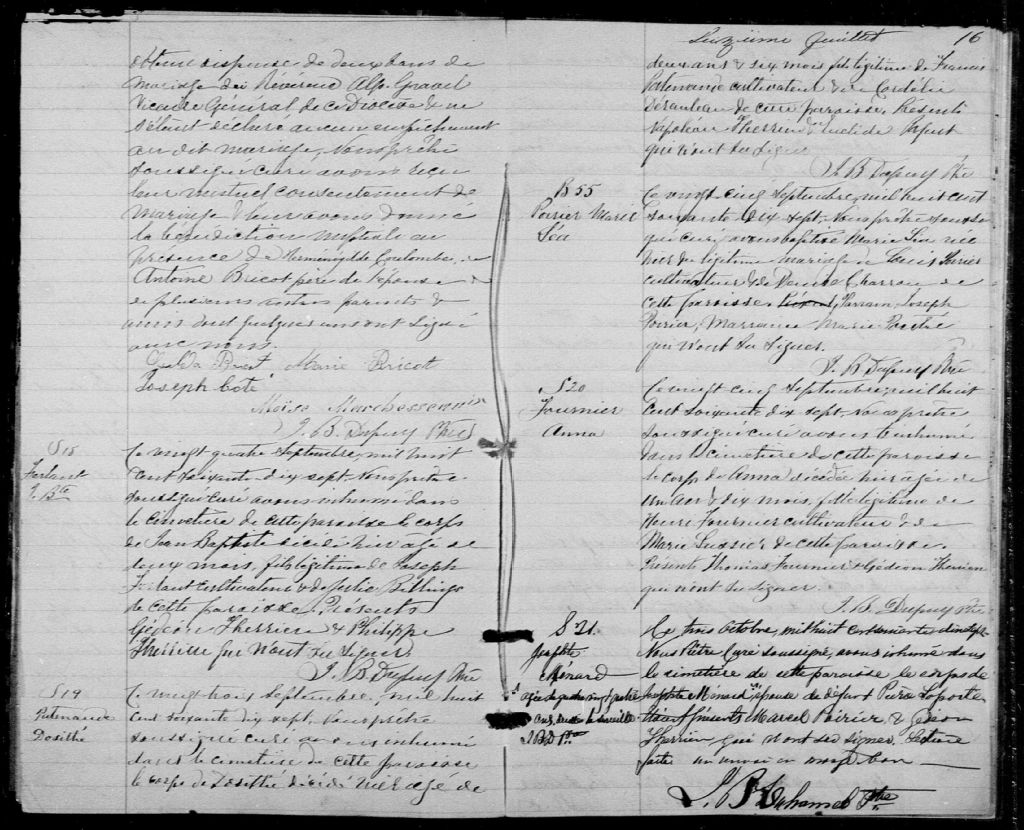 obtenu dispense de deux bans de
mariage du Révérend Alp. Gravel
Vicaire Général de ce diocèse & ne
s'étant déclaré aucun empêchement
au dit mariage, Nous prêtre
soussigné curé avons reçu
leur mutuel consentement de
mariage & leur avons donné
la bénédiction nuptiale en
présence de Herménigilde Coulombe, de
Antoine Bricot père de l'épouse &
de plusieurs autres parents &
amis dont quelques uns ont signé
avec nous.
Marie Bricot
Joseph Coté
Moïse
J. B. Dupuy Ptre
S 18
J. Bte
Ce vingt quatre septembre, mil huit
cent soixante dix sept, Nous prêtre
soussigné curé avons inhumé dans
le cimetière de cette paroisse le corps
de Jean Baptiste décédé hier agé de
deux mois, fils légitime de Joseph
cultivateur & de Julie Billings
de cette paroisse. Présents
Gédéon Therrien & Philippe
Therrien qui n'ont su signer.
J. B. Dupuy Ptre
S 19
Patenaude
Dosithé
Ce vingt trois septembre, mil huit
cent soixante dix sept, Nous prêtre
soussigné curé avons inhumé
dans le cimetière de cette paroisse
le corps de Dosithé décédé hier agé de
Seizième feuillet 16
deux ans & six mois fils légitime de Francis
Patenaude cultivateur & de Cordélie
de cette paroisse. Présents
Napoléon Therrien &
qui n'ont su signer
J. B. Dupuy Ptre
B 55
Poirier Marie
Léa
Ce vingt cinq Septembre, mil huit cent
soixante dix sept, Nous prêtre soussi-
gné curé avons baptisé Marie Léa née
hier du légitime mariage de Louis Poirier
cultivateur & de Charron de
cette paroisse. Parrain, Joseph
Poirier, Marraine Marie
qui n'ont su signer.
J. B. Dupuy Ptre
S 20
Fournier
Anna
Ce vingt cinq Septembre, mil huit
cent soixante dix sept, Nous prêtre
soussigné curé avons inhumé
dans le cimetière de cette paroisse
le corps de Anna décédée hier agée de
un an & dix mois, fille légitime de
Henri Fournier cultivateur & de
Marie Lussier de cette paroisse.
Présents Thomas Fournier & Gédéon Therrien
qui n'ont su signer.
J. B. Dupuy Ptre
S 21.
Josephte
Ménard
agée de quatre vingt quatre
ans
J B D Ptre
Ce trois Octobre, mil huit cent soixante dix sept
Nous Prêtre Curé soussigné, avons inhumé dans
le cimetière de cette paroisse le corps de
Josephte Ménard épouse de défunt Pierre Laporte
Présents Marcel Poirier & Gédéon
Therrien qui n'ont su signer. Lecture
faite un renvoi en marge bon
J. B. Duhamel Ptre